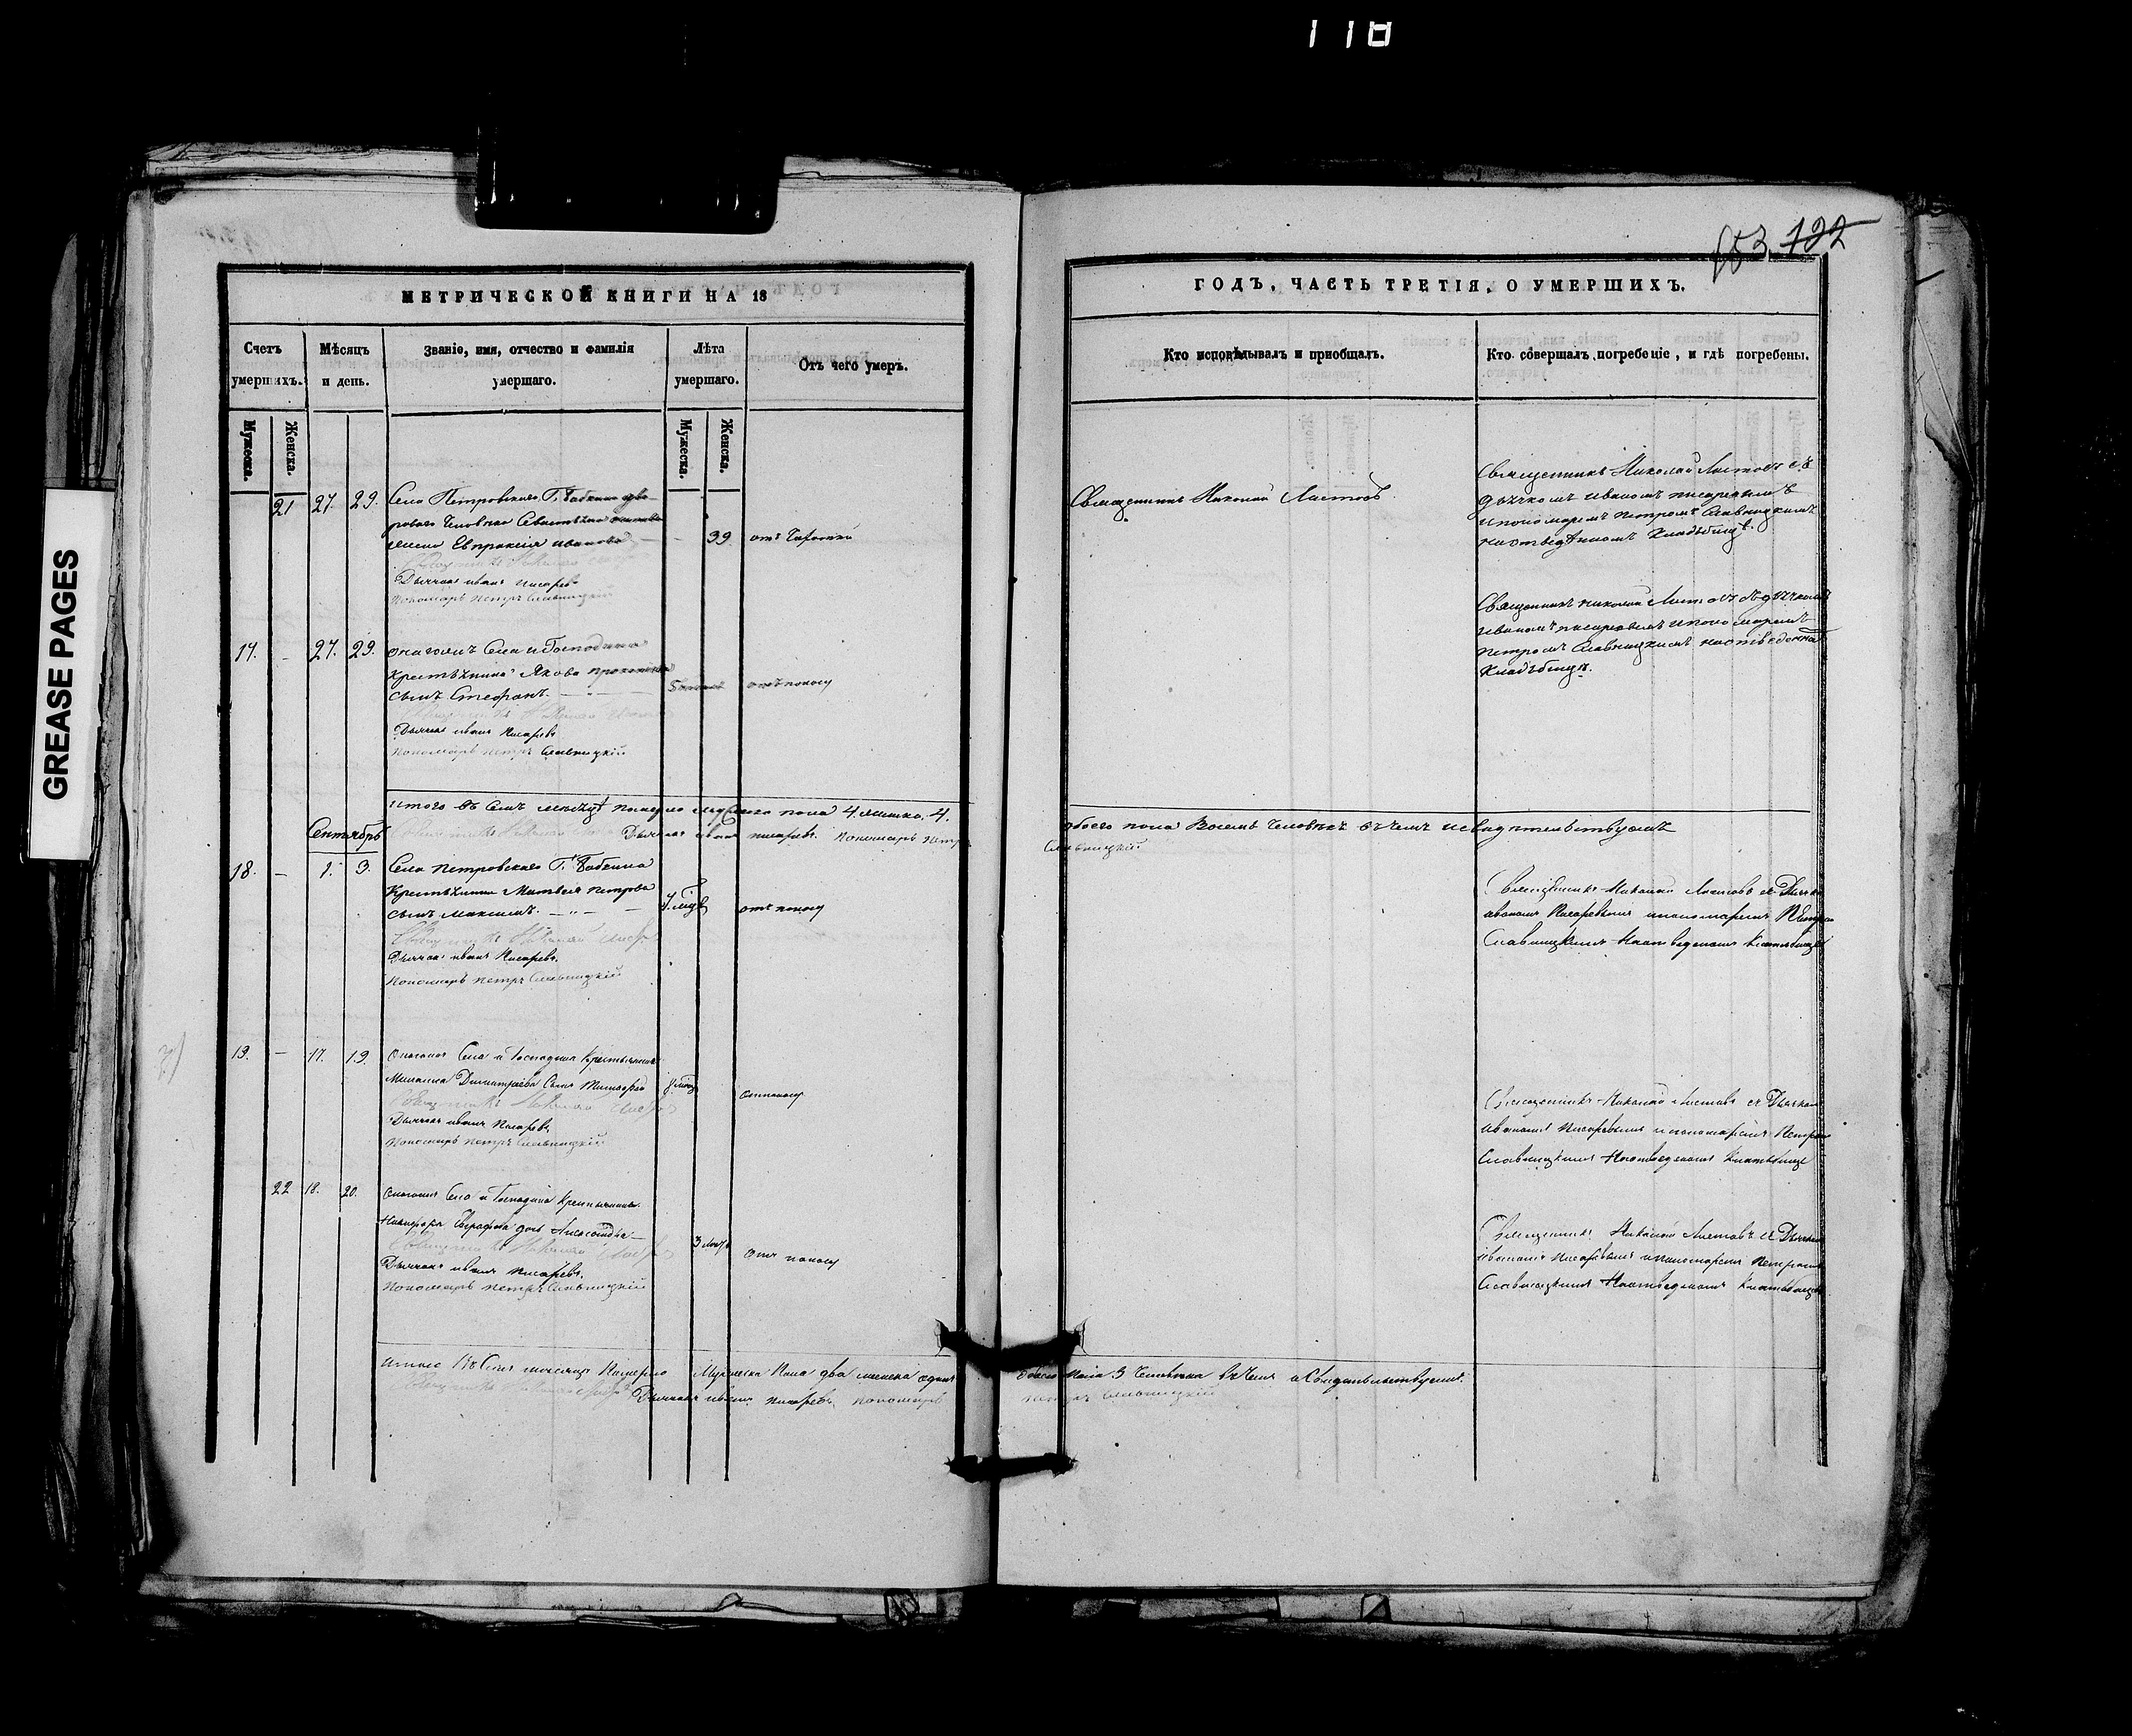 118
GREASE PAGES
853 122
МЕТРИЧЕСКОЙ КНИГИ НА 18
Счетъ умершихъ.
Мѣсяцъ и день.
Званіе, имя, отчество и фамилія умершаго.
Лѣта умершаго.
Отъ чего умеръ.
Мужеска.
Женска.
Мужеска.
Женска.
21 27. 29. Села Петровскаго Г. Бабкина
жена Евпраксія Иванова 39
Дьячокъ иванъ Писаревъ
пономарь петръ Славницкій
17. - 27. 29. Онагожъ Села и Господина
крестьянина Якова
сынъ Стефанъ. отъ поносу
Дьячокъ иванъ Писаревъ
пономарь петръ Славницкій
итого въ семъ мѣсяцѣ померло мужеска пола 4. женска. 4.
Сентябрь Дьячокъ иванъ писаревъ. пономарь петръ
18. - 1. 3. Села петровскаго Г. Бабкина
Крестьянина Матвея петрова
сынъ Максимъ. отъ поносу
Дьячокъ иванъ Писаревъ.
пономарь петръ Славницкій
19. - 17. 19. Онагожъ Села и Господина Крестьянина
Димитріева Сынъ отъ поносу
Дьячокъ иванъ Писаревъ
пономарь петръ Славницкій
22 18. 20. Онагожъ Села и Господина Крестьянина
Никифора дочь 3 отъ поносу
Дьячокъ иванъ Писаревъ.
пономарь петръ Славницкій
итого въ семъ месяце Померло Мужеска Пола два женска одна
Дьячокъ иванъ писаревъ пономарь
ГОДЪ, ЧАСТЬ ТРЕТІЯ, О УМЕРШИХЪ.
Кто исповѣдывалъ и пріобщалъ.
Кто совершалъ погребеніе, и гдѣ погребены.
Священникъ Николай Листовъ
Священникъ Николай Листовъ съ
дьячкомъ иваномъ писаревымъ
и пономаремъ петромъ Славницкимъ
на отведенномъ кладбищѣ.
Священникъ николай Листовъ съ дьячкомъ
иваномъ писаревымъ и пономаремъ
петромъ Славницкимъ на отведенномъ
кладбищѣ.
обоего пола Восемь человѣкъ въ чемъ и свидѣтельствуемъ
Славницкій
Священникъ Николай Листовъ съ Дьячкомъ
иваномъ Писаревымъ и пономаремъ Петромъ
Славницкимъ На отведенномъ Кладбищѣ
Священникъ Николай Листовъ съ Дьячкомъ
иваномъ Писаревымъ и пономаремъ Петромъ
Славницкимъ На отведенномъ Кладбищѣ
Священникъ Николай Листовъ съ Дьячкомъ
иваномъ Писаревымъ и пономаремъ Петромъ
Славницкимъ На отведенномъ Кладбищѣ
обоего Пола 3 Человека въ чемъ и Свидѣтельствуемъ.
петръ Славницкій